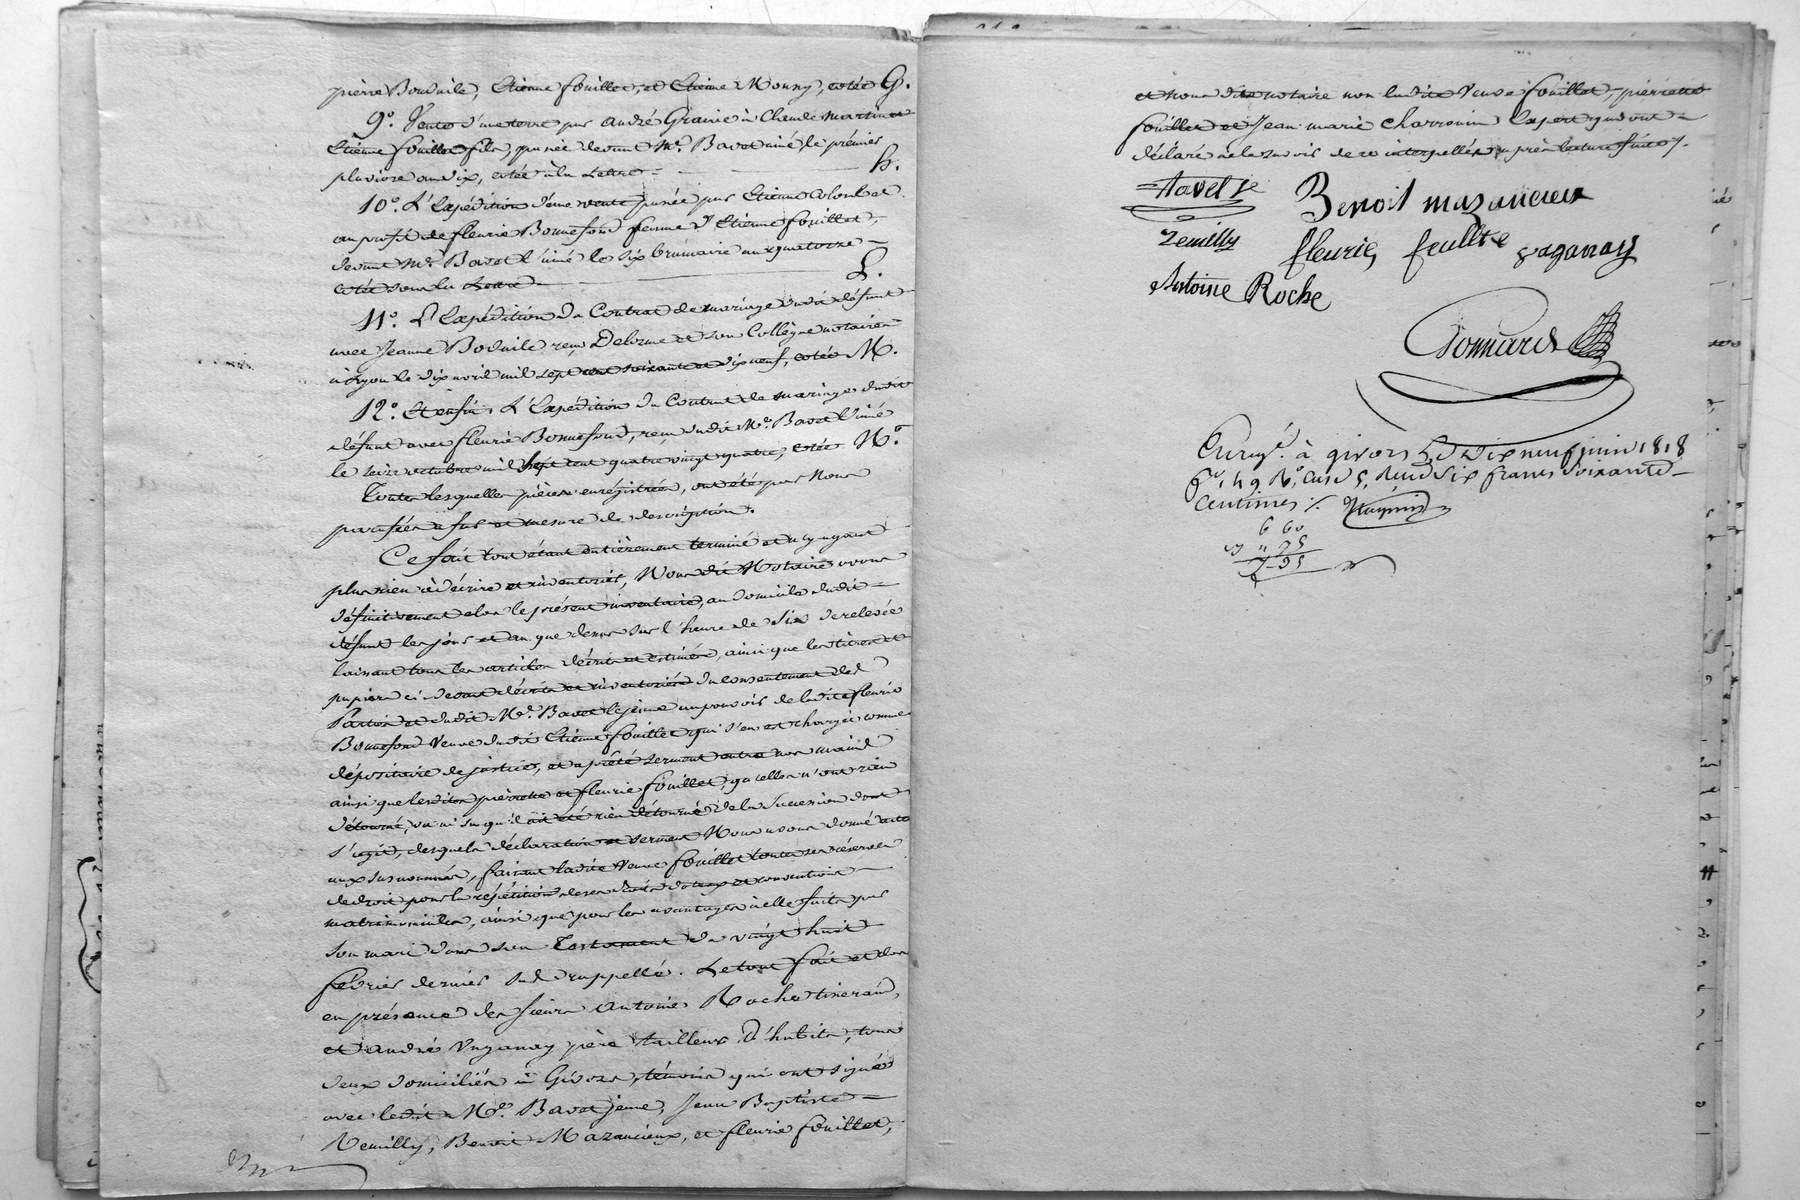 pierre Bouduile, Etienne fouillet, et Etienne Mouny, cotée G.
9.° Vente d'une terre par André Grainié à Claude Martin et
Etienne fouillet fils, passée devant M.e Bavet ainé le premier
pluviose an dix, cotée à la Lettre - H.
10.° L'Expédition d'une vente passée par Etienne Colombet
au profit de fleurie Bonnefond femme d'Etienne fouillet,
devant M.e Bavet l'ainé le six brumaire an quatorze -
cotée sous la Lettre - L.
11.° L'Expédition du Contrat de mariage dudit défunt
avec Jeanne Boduile, reçu Delorme et son Collègue notaires
à Lyon le dix avril mil sept cent soixante et dix neuf, cotée M.
12.° Et enfin, L'Expédition du Contrat de mariage dudit
défunt avec fleurie Bonnefond, reçu dudit M.e Bavet l'ainé
le seize octobre mil sept cent quatre vingt quatre, cotée N.°
Toutes lesquelles pièces enregistrées, ont été par Nous
paraffées à fur et mesure de description.
Ce fait tout étant entièrement terminé et n'y ayant
plus rien à décrire et inventorier, Nous dit Notaire avons
définitivement clos le présent inventaire, au domicile dudit -
défunt les jour et an que dessus sur l'heure de six de relevée
laissant tous les articles décrits et estimés, ainsi que les titres et
papiers ci devant décrits et inventoriés du consentement des
Parties et dudit M.e Bavet le jeune au pouvoir de ladite fleurie
Bonnefond Veuve dudit Etienne fouillet qui s'en est chargée comme
dépositaire de justice, et a prêté serment entre nos mains
ainsi que lesdites pierrette et fleurie fouillet, qu'elles n'ont rien
détourné, vu ni su qu'il ait été rien détourné de la Succession dont
s'agit, desquels déclaration et serment Nous avons donné acte
aux susnommées, faisant ladite Veuve fouillet toutes ses réserves
de droit pour la répétition de ses droits dotaux et conventions -
matrimoniales, ainsi que pour les avantages à elle faits par
son mari dans son Testament du vingt huit
février dernier sus rappellé. Le tout fait et clos
en présence des sieurs Antoine Roche tisserand,
et André Vaganay père tailleur d'habits, tous
deux domiciliés à Givors, témoins qui ont signé
avec ledit M.e Bavet jeune, Jean Baptiste -
Remilly, Benoit Mazancieux, et fleurie fouillet,
et nous dit notaire non ladite Veuve fouillet, pierrette
fouillet et Jean marie Charronin Expert qui ont -
déclaré ne le savoir de ce interpellés après lecture faite.
Benoit mazancieux
Remilly fleurie feullte vaganay
Antoine Roche
Gonnard
Enreg.é à givors le Dix neuf juin 1818
f.o 149 R.o Case 5, Reçu Six francs Soixante -
Centimes
6 60